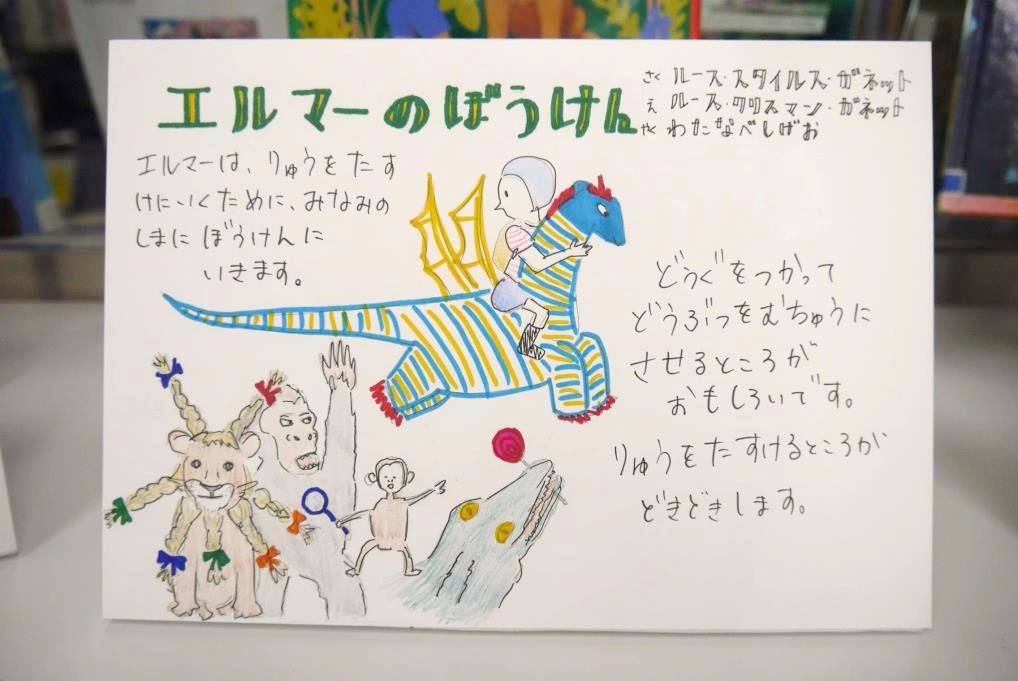 エルマーのぼうけん
さく ルース・スタイルス・ガネット
え ルース・クリスマン・ガネット
やく わたなべしげお
エルマーは、りゅうをたす
けにいくために、みなみの
しまにぼうけんに
いきます。
どうぐをつかって
どうぶつをむちゅうに
させるところが
おもしろいです。
りゅうをたすけるところが
どきどきします。